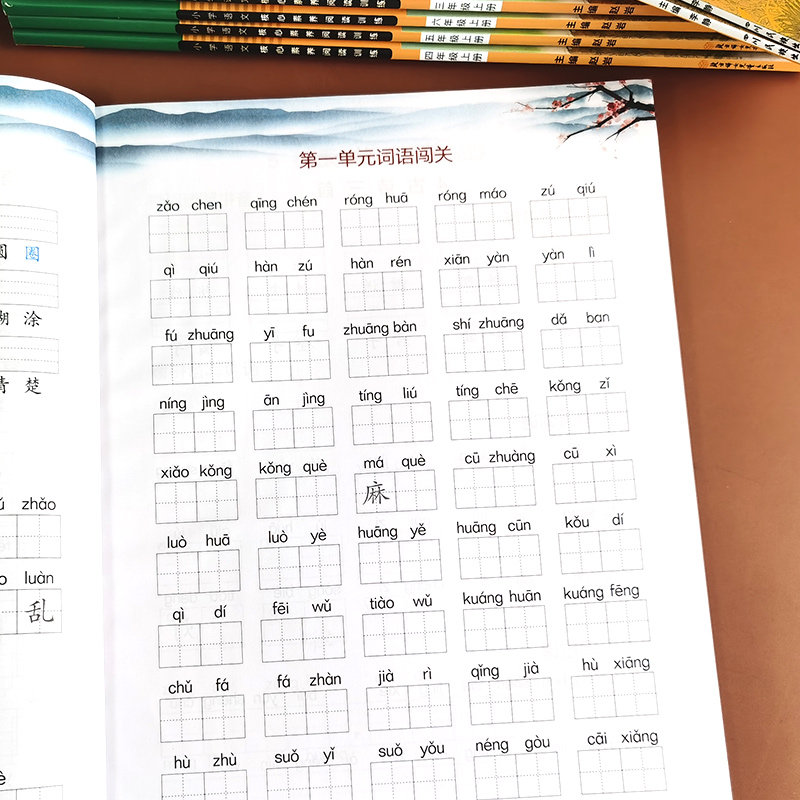 小学语文核心素养阅读训练 三年级上册 主编 赵岩
小学语文核心素养阅读训练 六年级上册 主编 赵岩
小学语文核心素养阅读训练 五年级上册 主编 赵岩
小学语文核心素养阅读训练 四年级上册 主编 赵岩
圆 圈
糊 涂
清 楚
zhǎo
luàn
乱
第一单元词语闯关
zǎo chen qīng chén róng huā róng máo zú qiú
qì qiú hàn zú hàn rén xiān yàn yàn lì
fú zhuāng yī fu zhuāng bàn shí zhuāng dǎ ban
níng jìng ān jìng tíng liú tíng chē kǒng zǐ
xiǎo kǒng kǒng què má què cū zhuàng cū xì
麻
luò huā luò yè huāng yě huāng cūn kǒu dí
qì dí fēi wǔ tiào wǔ kuáng huān kuáng fēng
chǔ fá fá zhàn jià rì qǐng jià hù xiāng
hù zhù suǒ yǐ suǒ yǒu néng gòu cāi xiǎng